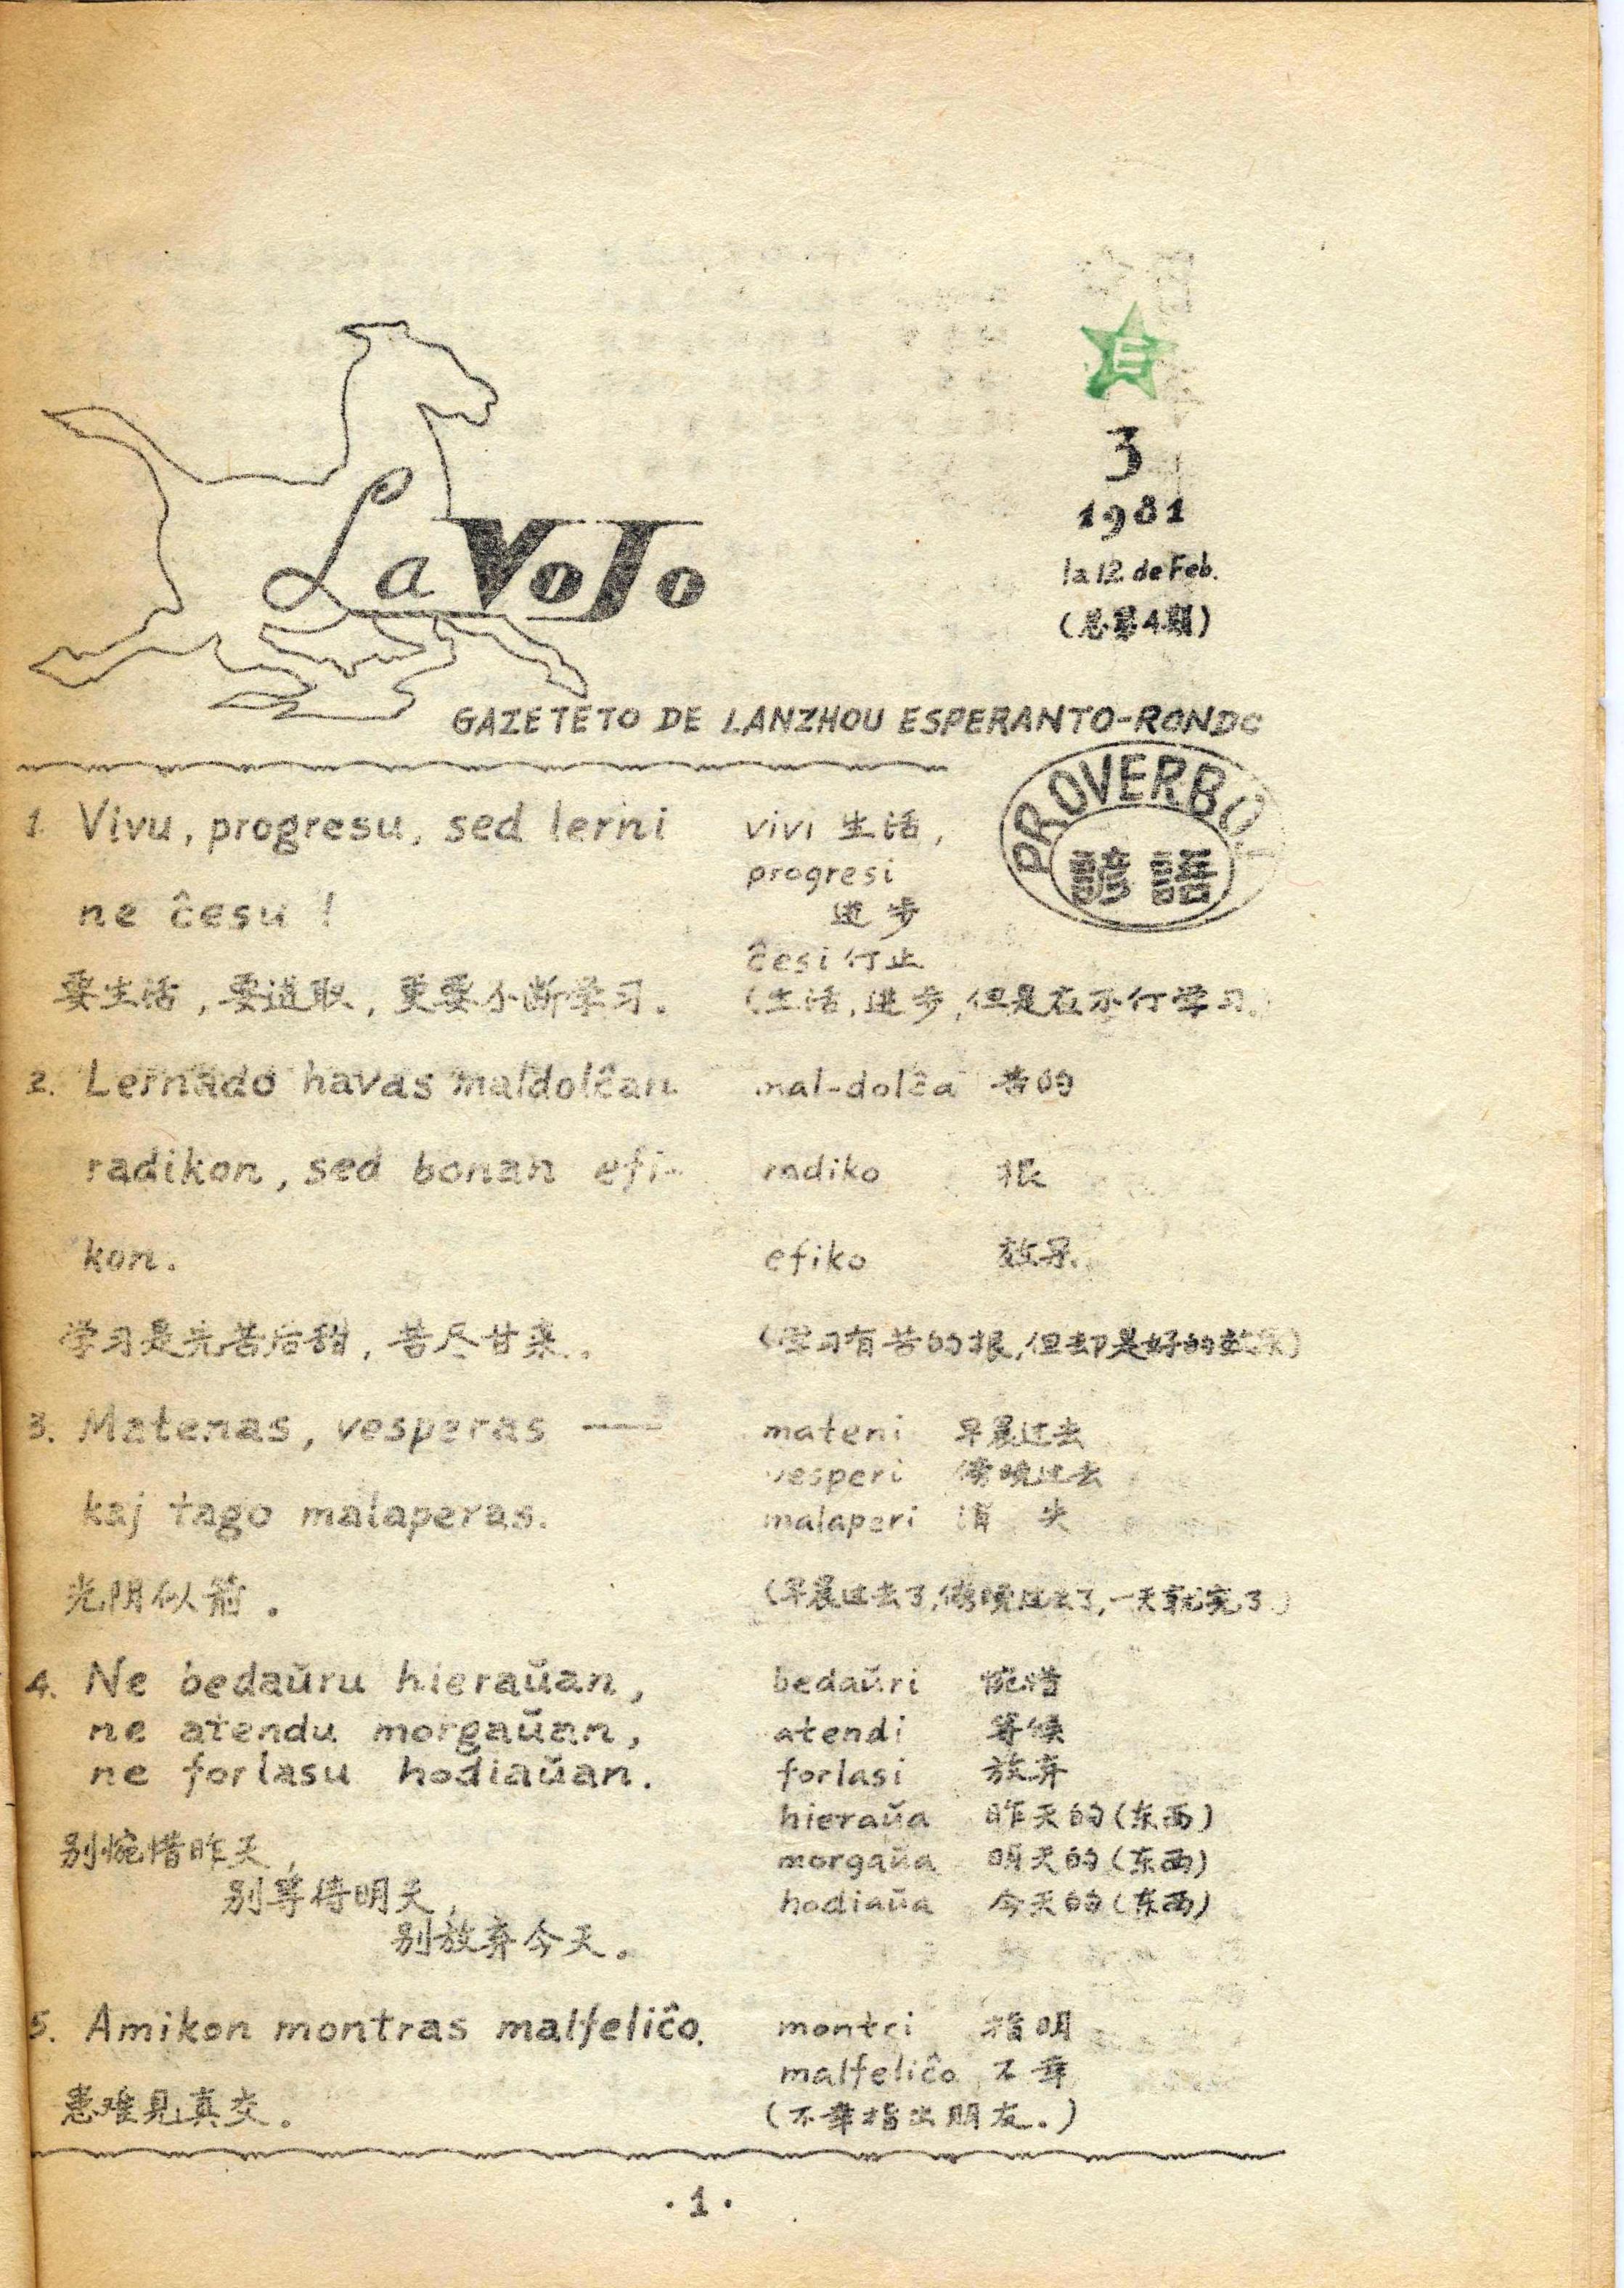 E
3
1981
la 12 de Feb.
(总第4期)
La VoJo
GAZETETO DE LANZHOU ESPERANTO-RONDO
PROVERBOJ
諺語
1. Vivu, progresu, sed lerni
ne ĉesu !
要生活,要进取,更要不断学习。
vivi 生活,
progresi
进步
ĉesi 仃止
(生活,进步,但是在不仃学习.)
2. Lernado havas maldolĉan
radikon, sed bonan efi-
kon.
学习是先苦后甜,苦尽甘来.。
mal-dolĉa 苦的
radiko 根
efiko 效果.
(学习有苦的根,但却是好的效果)
3. Matenas, vesperas —
kaj tago malaperas.
光阴似箭。
mateni 早晨过去
vesperi 傍晚过去
malaperi 消 失
(早晨过去了,傍晚过去了,一天就完了.)
4. Ne bedaŭru hieraŭan,
ne atendu morgaŭan,
ne forlasu hodiaŭan.
别惋惜昨天,
别等待明天,
别放弃今天。
bedaŭri 惋惜
atendi 等候
forlasi 放弃
hieraŭa 昨天的(东西)
morgaŭa 明天的(东西)
hodiaŭa 今天的(东西)
5. Amikon montras malfeliĉo.
患难见真交。
montri 指明
malfeliĉo 不幸
(不幸指出朋友.)
·1·